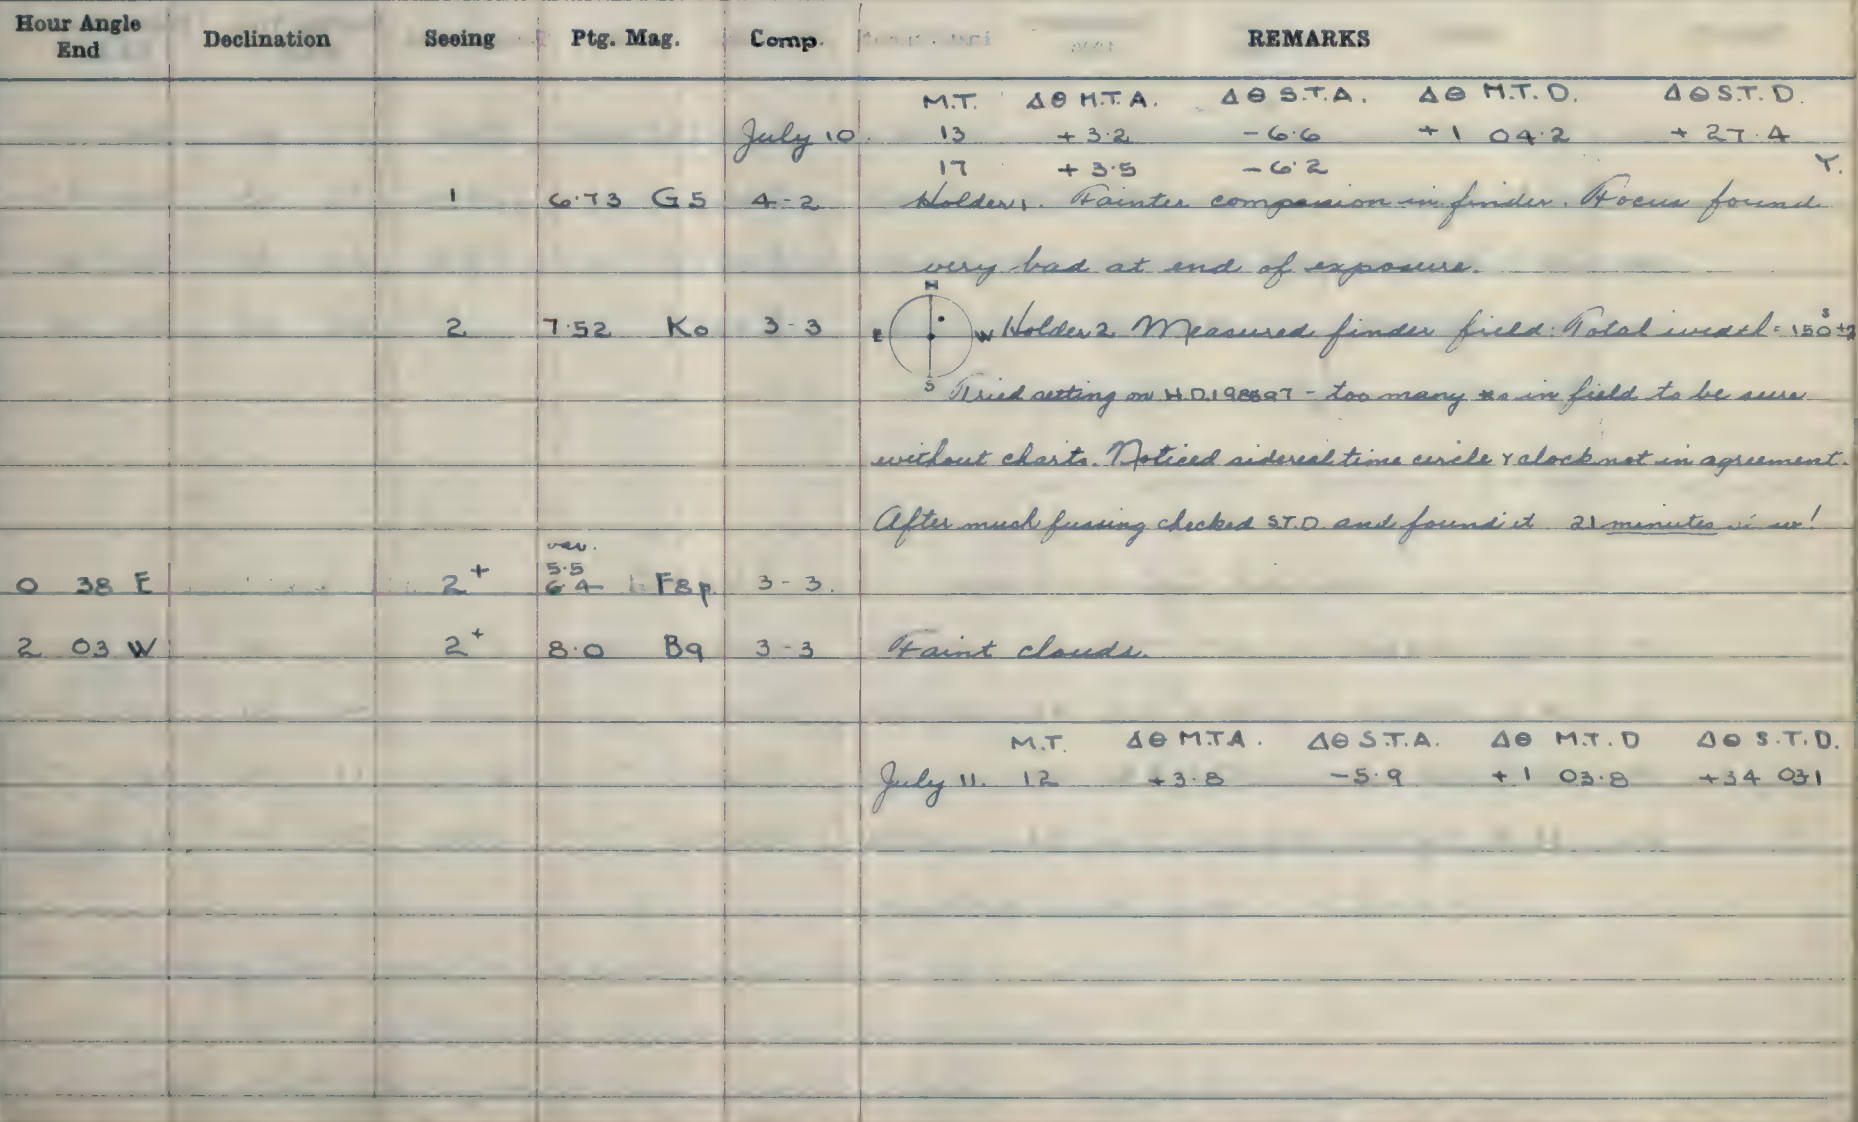 Hour Angle End Declination Seeing Ptg. Mag. Comp. REMARKS
M.T. ΔΘ M.T.A. ΔΘ S.T.A. ΔΘ M.T.D. ΔΘ S.T.D.
July 10. 13 +3.2 -6.6 +1 04.2 +27.4
17 +3.5 -6.2 Y.
1 6.73 G5 4-2 Holder 1. Fainter companion in finder. Focus found
very bad at end of exposure.
N
2 7.52 K0 3-3 E W Holder 2. Measured finder field. Total width = 150s ±2
S Tried setting on H.D. - too many *s in field to be sure
without charts. Noticed sidereal time circle & clock not in agreement.
After much fussing checked S.T.D and found it 21 minutes !
var.
5.5
0 38 E 2+ 6.4 F8p 3-3.
2 03 W 2+ 8.0 B9 3-3 Faint clouds.
M.T. ΔΘ M.T.A. ΔΘ S.T.A. ΔΘ M.T.D ΔΘ S.T.D.
July 11. 12 +3.8 -5.9 +1 03.8 +34 03.1